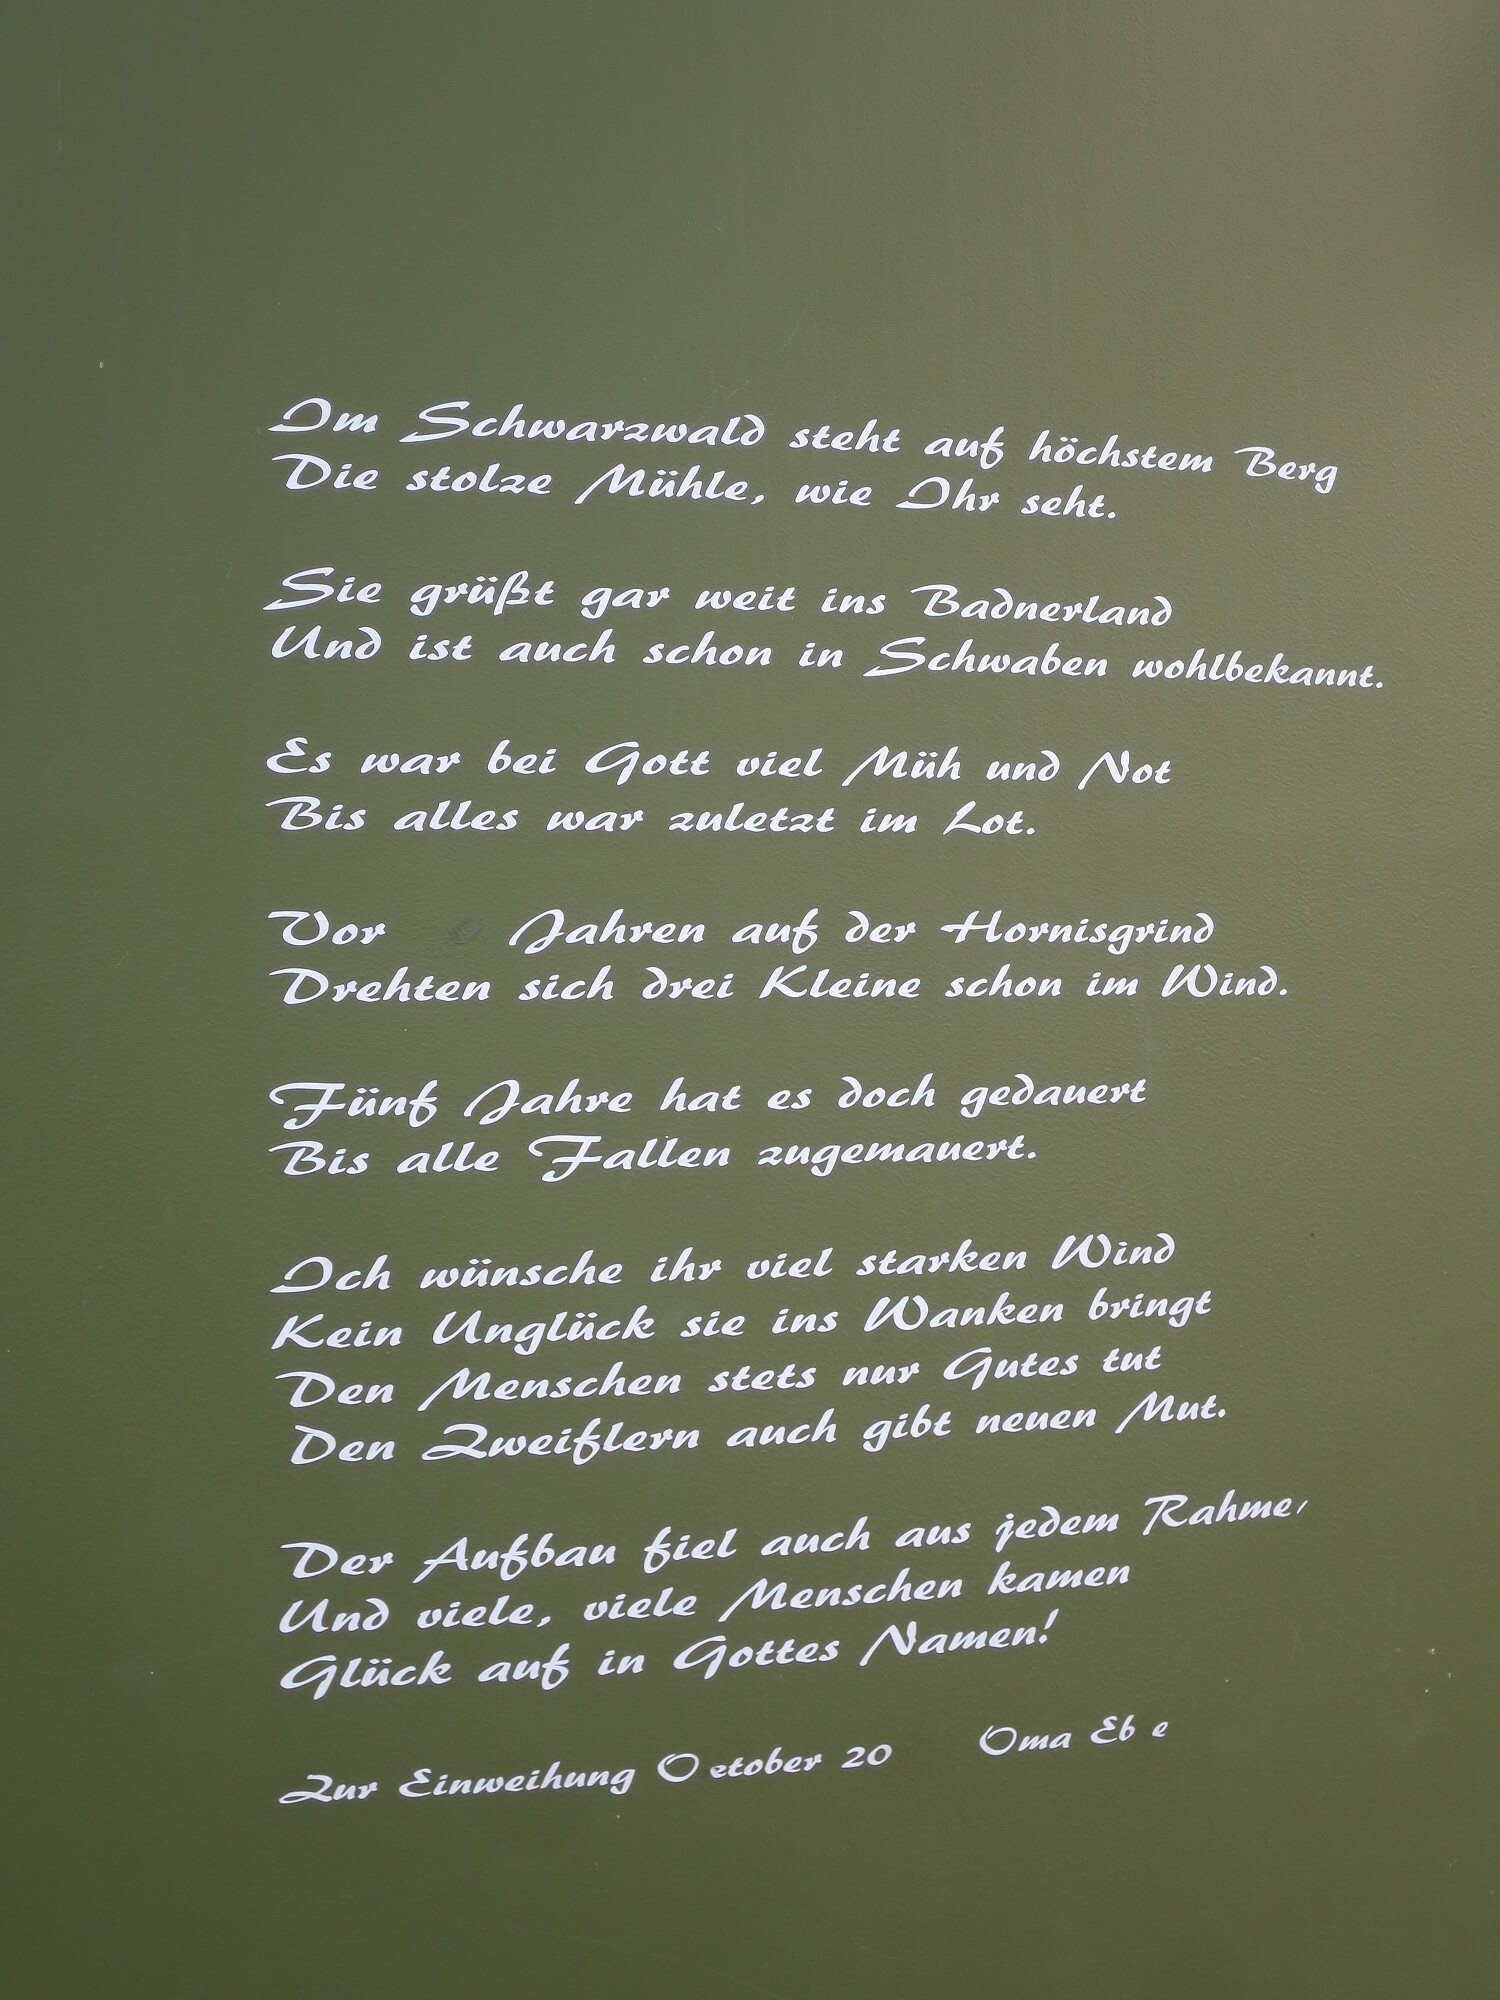 Im Schwarzwald steht auf höchstem Berg
Die stolze Mühle, wie Ihr seht.
Sie grüßt gar weit ins Badnerland
Und ist auch schon in Schwaben wohlbekannt.
Es war bei Gott viel Müh und Not
Bis alles war zuletzt im Lot.
Vor Jahren auf der Hornisgrind
Drehten sich drei Kleine schon im Wind.
Fünf Jahre hat es doch gedauert
Bis alle Fallen zugemauert.
Ich wünsche ihr viel starken Wind
Kein Unglück sie ins Wanken bringt
Den Menschen stets nur Gutes tut
Den Zweiflern auch gibt neuen Mut.
Der Aufbau fiel auch aus jedem Rahme,
Und viele, viele Menschen kamen
Glück auf in Gottes Namen!
Zur Einweihung O ctober 20 Oma Eb e